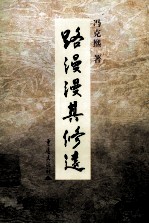 冯克熙 著
路漫漫其修远